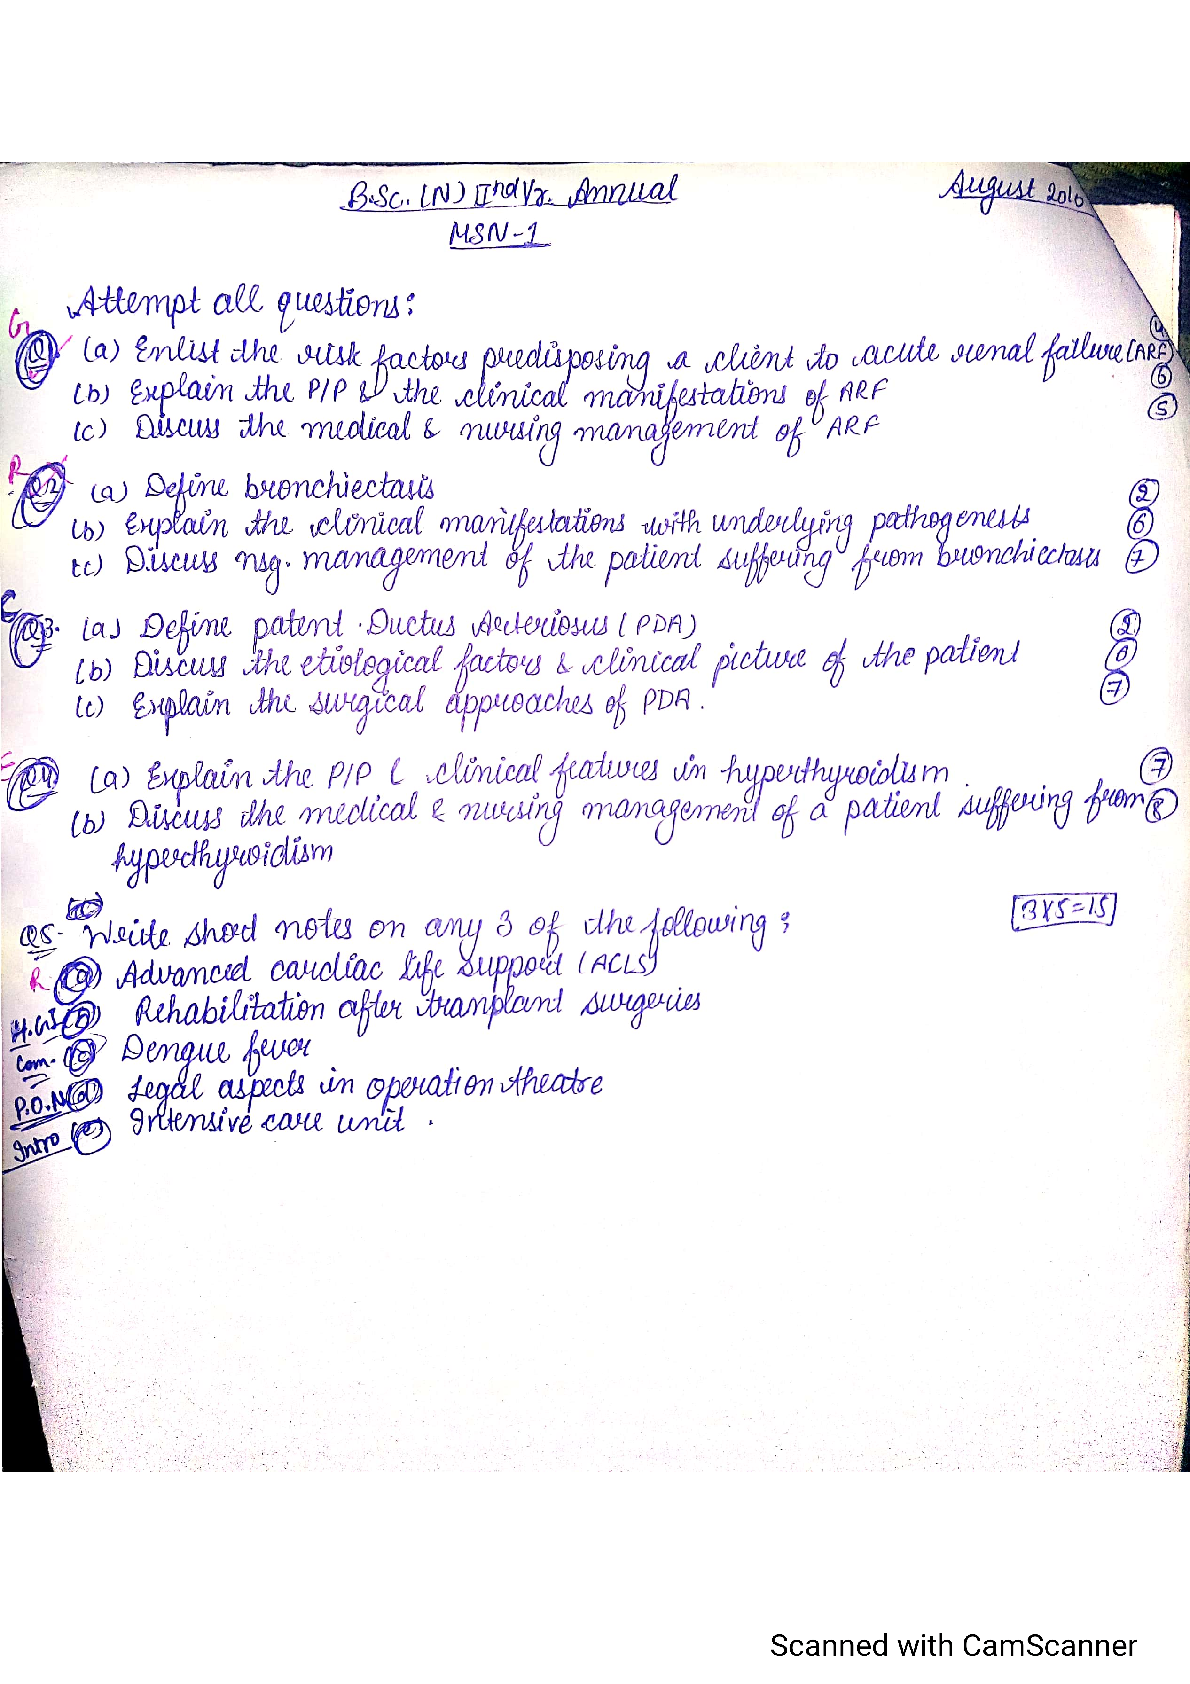 B.Sc. (N) IInd Yr. Annual
August 2016
MSN-1
Attempt all questions:
G
Q1 (a) Enlist the risk factors predisposing a client to acute renal failure (ARF) 4
(b) Explain the P/P & the clinical manifestations of ARF 6
(c) Discuss the medical & nursing management of ARF 5
R
Q2 (a) Define bronchiectasis 2
(b) Explain the clinical manifestations with underlying pathogenesis 6
(c) Discuss nsg. management of the patient suffering from bronchiectasis 7
C
Q3. (a) Define patent Ductus Arteriosus (PDA) 2
(b) Discuss the etiological factors & clinical picture of the patient 6
(c) Explain the surgical approaches of PDA. 7
E
Q4 (a) Explain the P/P & clinical features in hyperthyroidism 7
(b) Discuss the medical & nursing management of a patient suffering from 8
hyperthyroidism
Q5- Write short notes on any 3 of the following: 3x5=15
R (a) Advanced cardiac life support (ACLS)
(b) Rehabilitation after tranplant surgeries
Com. (c) Dengue fever
P.O.N (d) Legal aspects in operation theatre
Intro (e) Intensive care unit.
Scanned with CamScanner